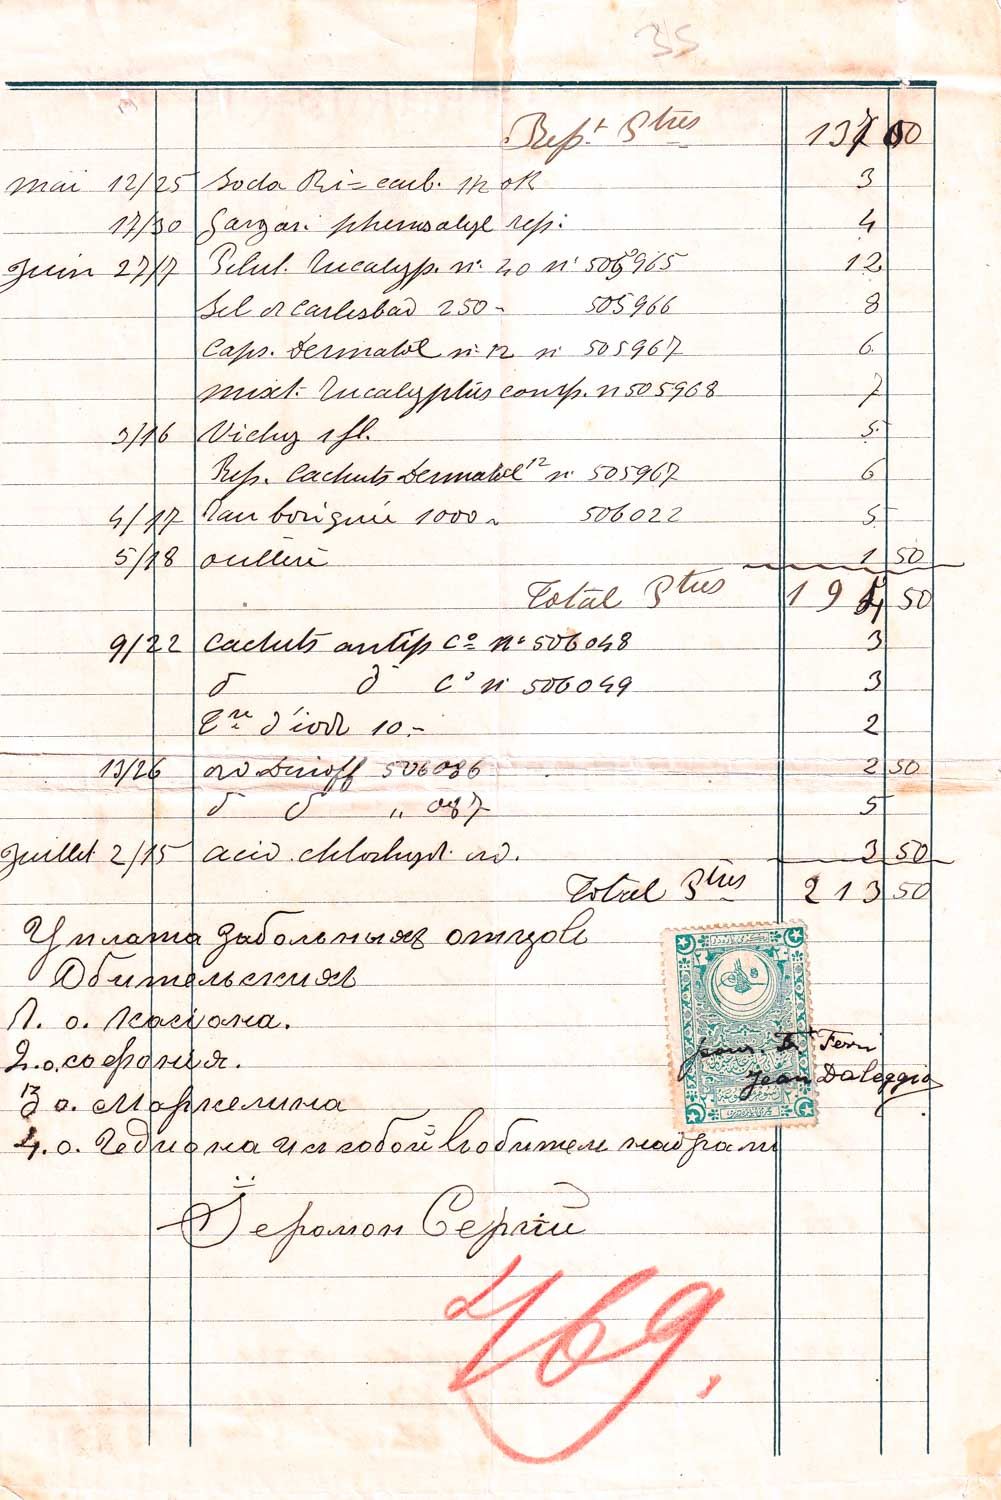 35
Rept Ptres 137 50
mai 12/25 Soda Bi-carb. 1/2 ok 3
17/30 Gargar. phenosalyl rep. 4
Juin 27/7 Pilul. Eucalyp. nº 40 nº 505965 12
Sel de Carlsbad 250 - 505966 8
Caps. Dermatol nº 12 nº 505967 6
mixt. Eucalyptus comp. n 505968 7
3/16 Vichy 1 fl. 5
Rep. Cachets Dermatol 12 nº 505967 6
4/17 Eau boriquée 1000 - 506022 5
5/18 1 50
Total Ptres 194 50
9/22 Cachets antip Cº Nº 506048 3
d d Cº nº 506049 3
Tre d'iode 10 - 2
13/26 ord Dinoff 506086 2 50
d d " 087 5
Juillet 2/15 acid. chlorhydr. ord. 3 50
Total Ptres 213 50
Уплата за больныхъ отцовъ
Обительскихъ
1. о. Касіана.
2. о. софонія.
3 о. Маркелина
4. о. Гедиона
Іеромон Сергій
pour Ft Ferri
Jean Daleggio
469.